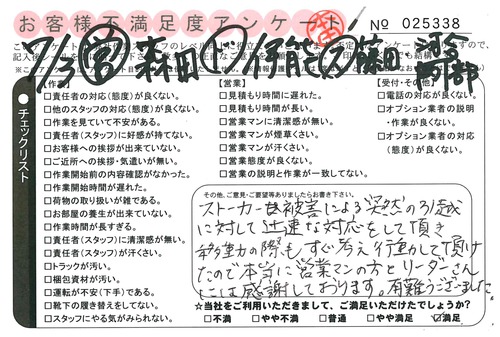 お客様不満足度アンケート
No 025338
チェックリスト
【作業】
□責任者の対応(態度)が良くない。
□他のスタッフの対応(態度)が良くない。
□作業を見ていて不安がある。
□責任者(スタッフ)に好感が持てない。
□お客様への挨拶が出来ていない。
□ご近所への挨拶・気遣いが無い。
□作業開始前の内容確認がなかった。
□作業開始時間が遅れた。
□荷物の取り扱いが雑である。
□お部屋の養生が出来ていない。
□作業時間が長すぎる。
□責任者(スタッフ)に清潔感が無い。
□責任者(スタッフ)が汗くさい。
□トラックが汚い。
□梱包資材が汚い。
□運転が不安(下手)である。
□靴下の履き替えをしてない。
□スタッフにやる気がみられない。
【営業】
□見積もり時間に遅れた。
□見積もり時間が長い。
□営業マンに清潔感が無い。
□営業マンが煙草くさい。
□営業マンが汗くさい。
□営業態度が良くない。
□営業の説明と作業が一致してない。
【受付・その他】
□電話の対応が良くない。
□オプション業者の説明
・作業が良くない。
□オプション業者の対応
(態度)が良くない。
その他、ご意見・ご要望等ありましたらお書き下さい。
ストーカー被害による突然の引越
に対して迅速な対応をして頂き
移動の際もすぐ考え行動して頂け
たので本当に営業マンの方とリーダーさん
には感謝しております。有難うございました
☆当社をご利用いただきまして、ご満足いただけたでしょうか?
□不満 □やや不満 □普通 □やや満足 ☑満足